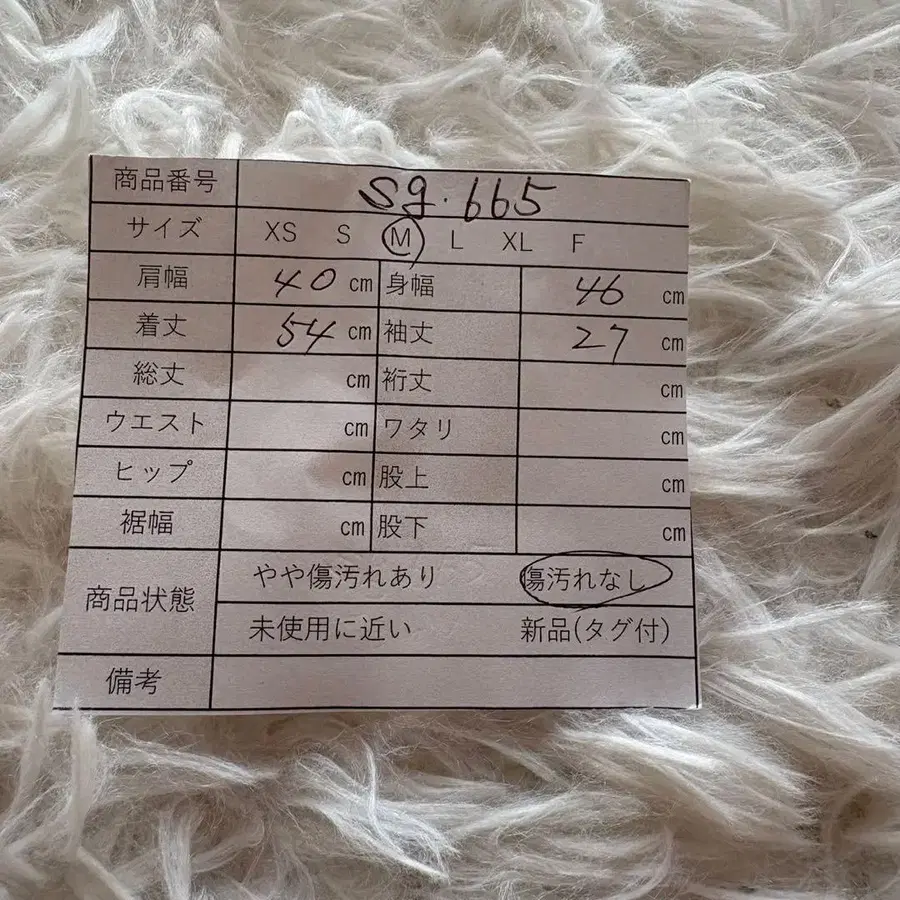 商品番号 sg.665
サイズ XS S M L XL F
肩幅 40 cm 身幅 46 cm
着丈 54 cm 袖丈 27 cm
総丈 cm 裄丈 cm
ウエスト cm ワタリ cm
ヒップ cm 股上 cm
裾幅 cm 股下 cm
商品状態 やや傷汚れあり 傷汚れなし
未使用に近い 新品(タグ付)
備考